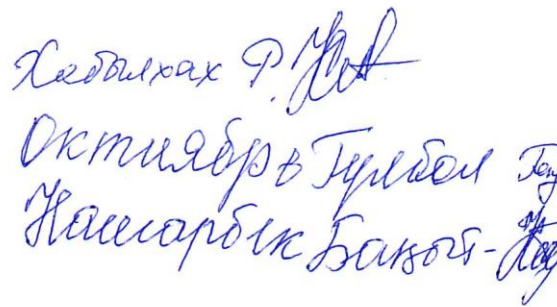 Хабылхах Р.
Октиябр в Гулбол
Нашарбек Бакыт-